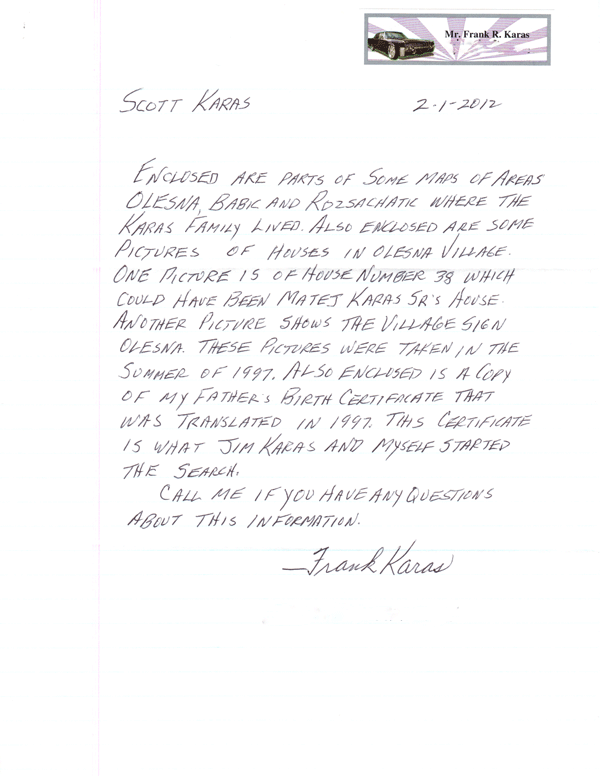 Mr. Frank R. Karas
SCOTT KARAS 2-1-2012
ENCLOSED ARE PARTS OF SOME MAPS OF AREAS
OLESNA, BABIC AND ROZSACHATIC WHERE THE
KARAS FAMILY LIVED. ALSO ENCLOSED ARE SOME
PICTURES OF HOUSES IN OLESNA VILLAGE.
ONE PICTURE IS OF HOUSE NUMBER 38 WHICH
COULD HAVE BEEN MATEJ KARAS SR'S HOUSE.
ANOTHER PICTURE SHOWS THE VILLAGE SIGN
OLESNA. THESE PICTURES WERE TAKEN IN THE
SUMMER OF 1997. ALSO ENCLOSED IS A COPY
OF MY FATHER'S BIRTH CERTIFICATE THAT
WAS TRANSLATED IN 1997. THIS CERTIFICATE
IS WHAT JIM KARAS AND MYSELF STARTED
THE SEARCH.
CALL ME IF YOU HAVE ANY QUESTIONS
ABOUT THIS INFORMATION.
—Frank Karas